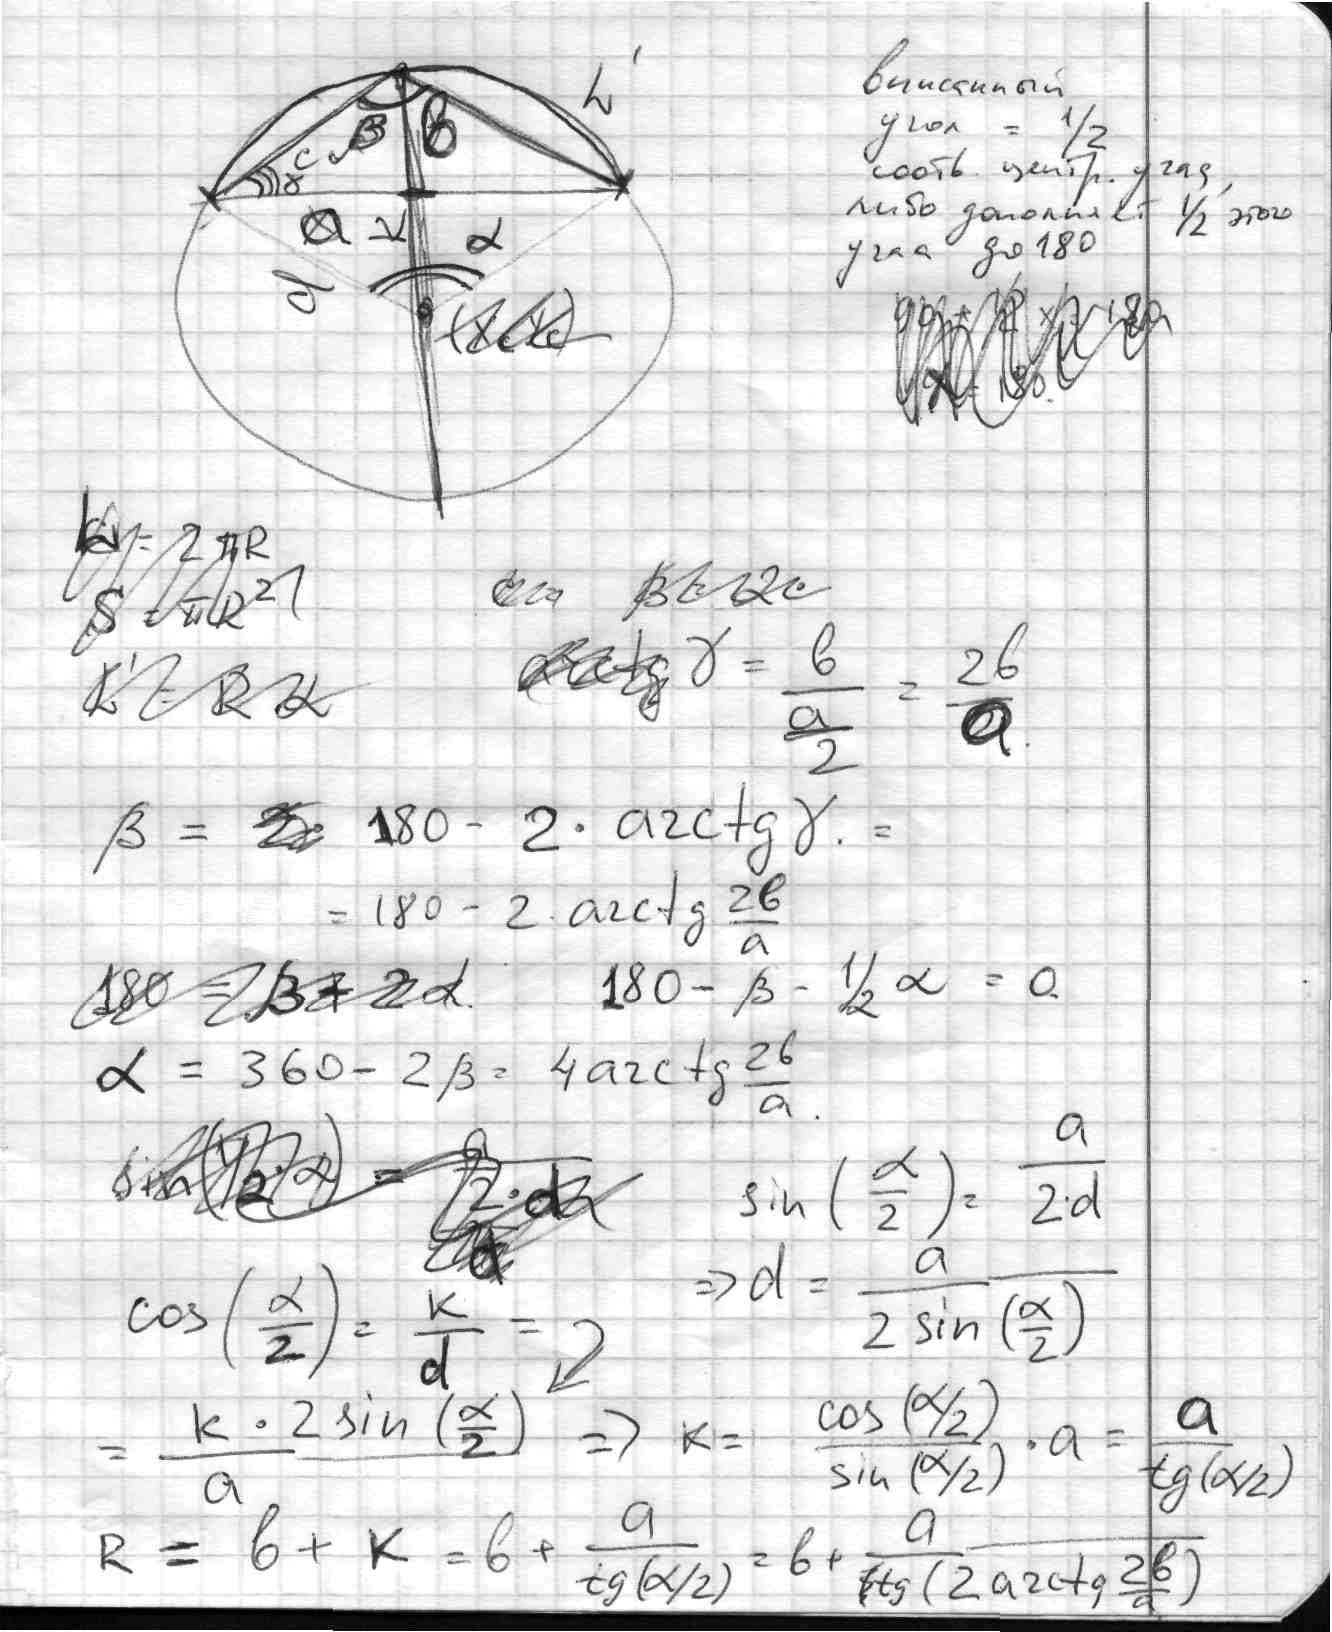 L'
β
b
c
γ
a
K
α
d
вписанный
угол = 1/2
соотв. центр. угла,
либо дополняет 1/2 этого
угла до 180
= 2πR
S = πR²
L' = Rα
γ = b / (a/2) = 2b / a.
β = 180 - 2 · arctg γ. =
= 180 - 2 · arctg 2b/a
180 = β + 2α. 180 - β - 1/2 α = 0.
α = 360 - 2β = 4 arctg 2b/a.
sin (α/2) = a / 2·d
=> d = a / 2 sin (α/2)
cos (α/2) = K/d =
= K · 2 sin (α/2) / a => K = cos (α/2) / sin (α/2) · a = a / tg (α/2)
R = b + K = b + a / tg (α/2) = b + a / tg (2 arctg 2b/a)